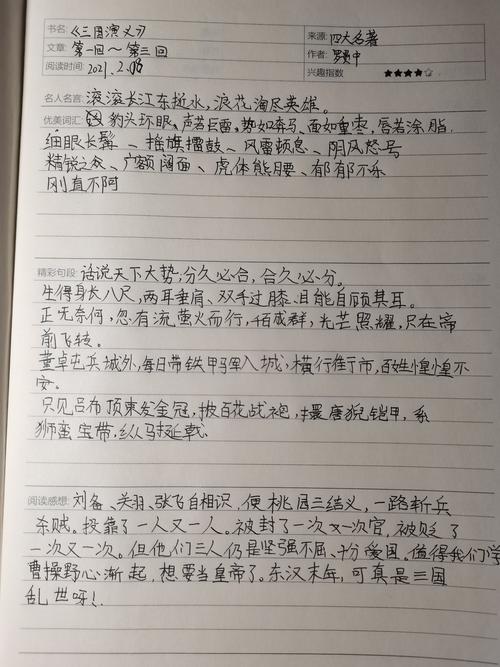 书名:《三国演义》 来源:四大名著
文章:第一回～第三回 作者:罗贯中
阅读时间:2021.2.06 兴趣指数 ★★★★☆
名人名言:滚滚长江东逝水,浪花淘尽英雄。
优美词汇:豹头环眼、声若巨雷、势如奔马、面如重枣,唇若涂脂.
细眼长髯、摇旗擂鼓、风雷顿息、阴风怒号
精锐之众、广额阔面、虎体熊腰、郁郁不乐
刚直不阿
精彩句段:话说天下大势,分久必合,合久必分。
生得身长八尺,两耳垂肩、双手过膝、目能自顾其耳。
正无奈何,忽有流萤火而行,百成群,光芒照耀,只在帝
前飞转。
董卓屯兵城外,每日带铁甲军入城,横行街市,百姓惶惶不
安。
只见吕布顶束发金冠,披百花战袍,擐唐猊铠甲,系
狮蛮宝带,纵马挺戟
阅读感想:刘备、关羽、张飞自相识,便桃园三结义,一路斩兵
杀贼。投靠了一人又一人。被封了一次又一次官,被贬了
一次又一次。但他们三人仍是坚强不屈、十分爱国。值得我们学
曹操野心渐起,想要当皇帝了。东汉末年,可真是三国
乱世呀!